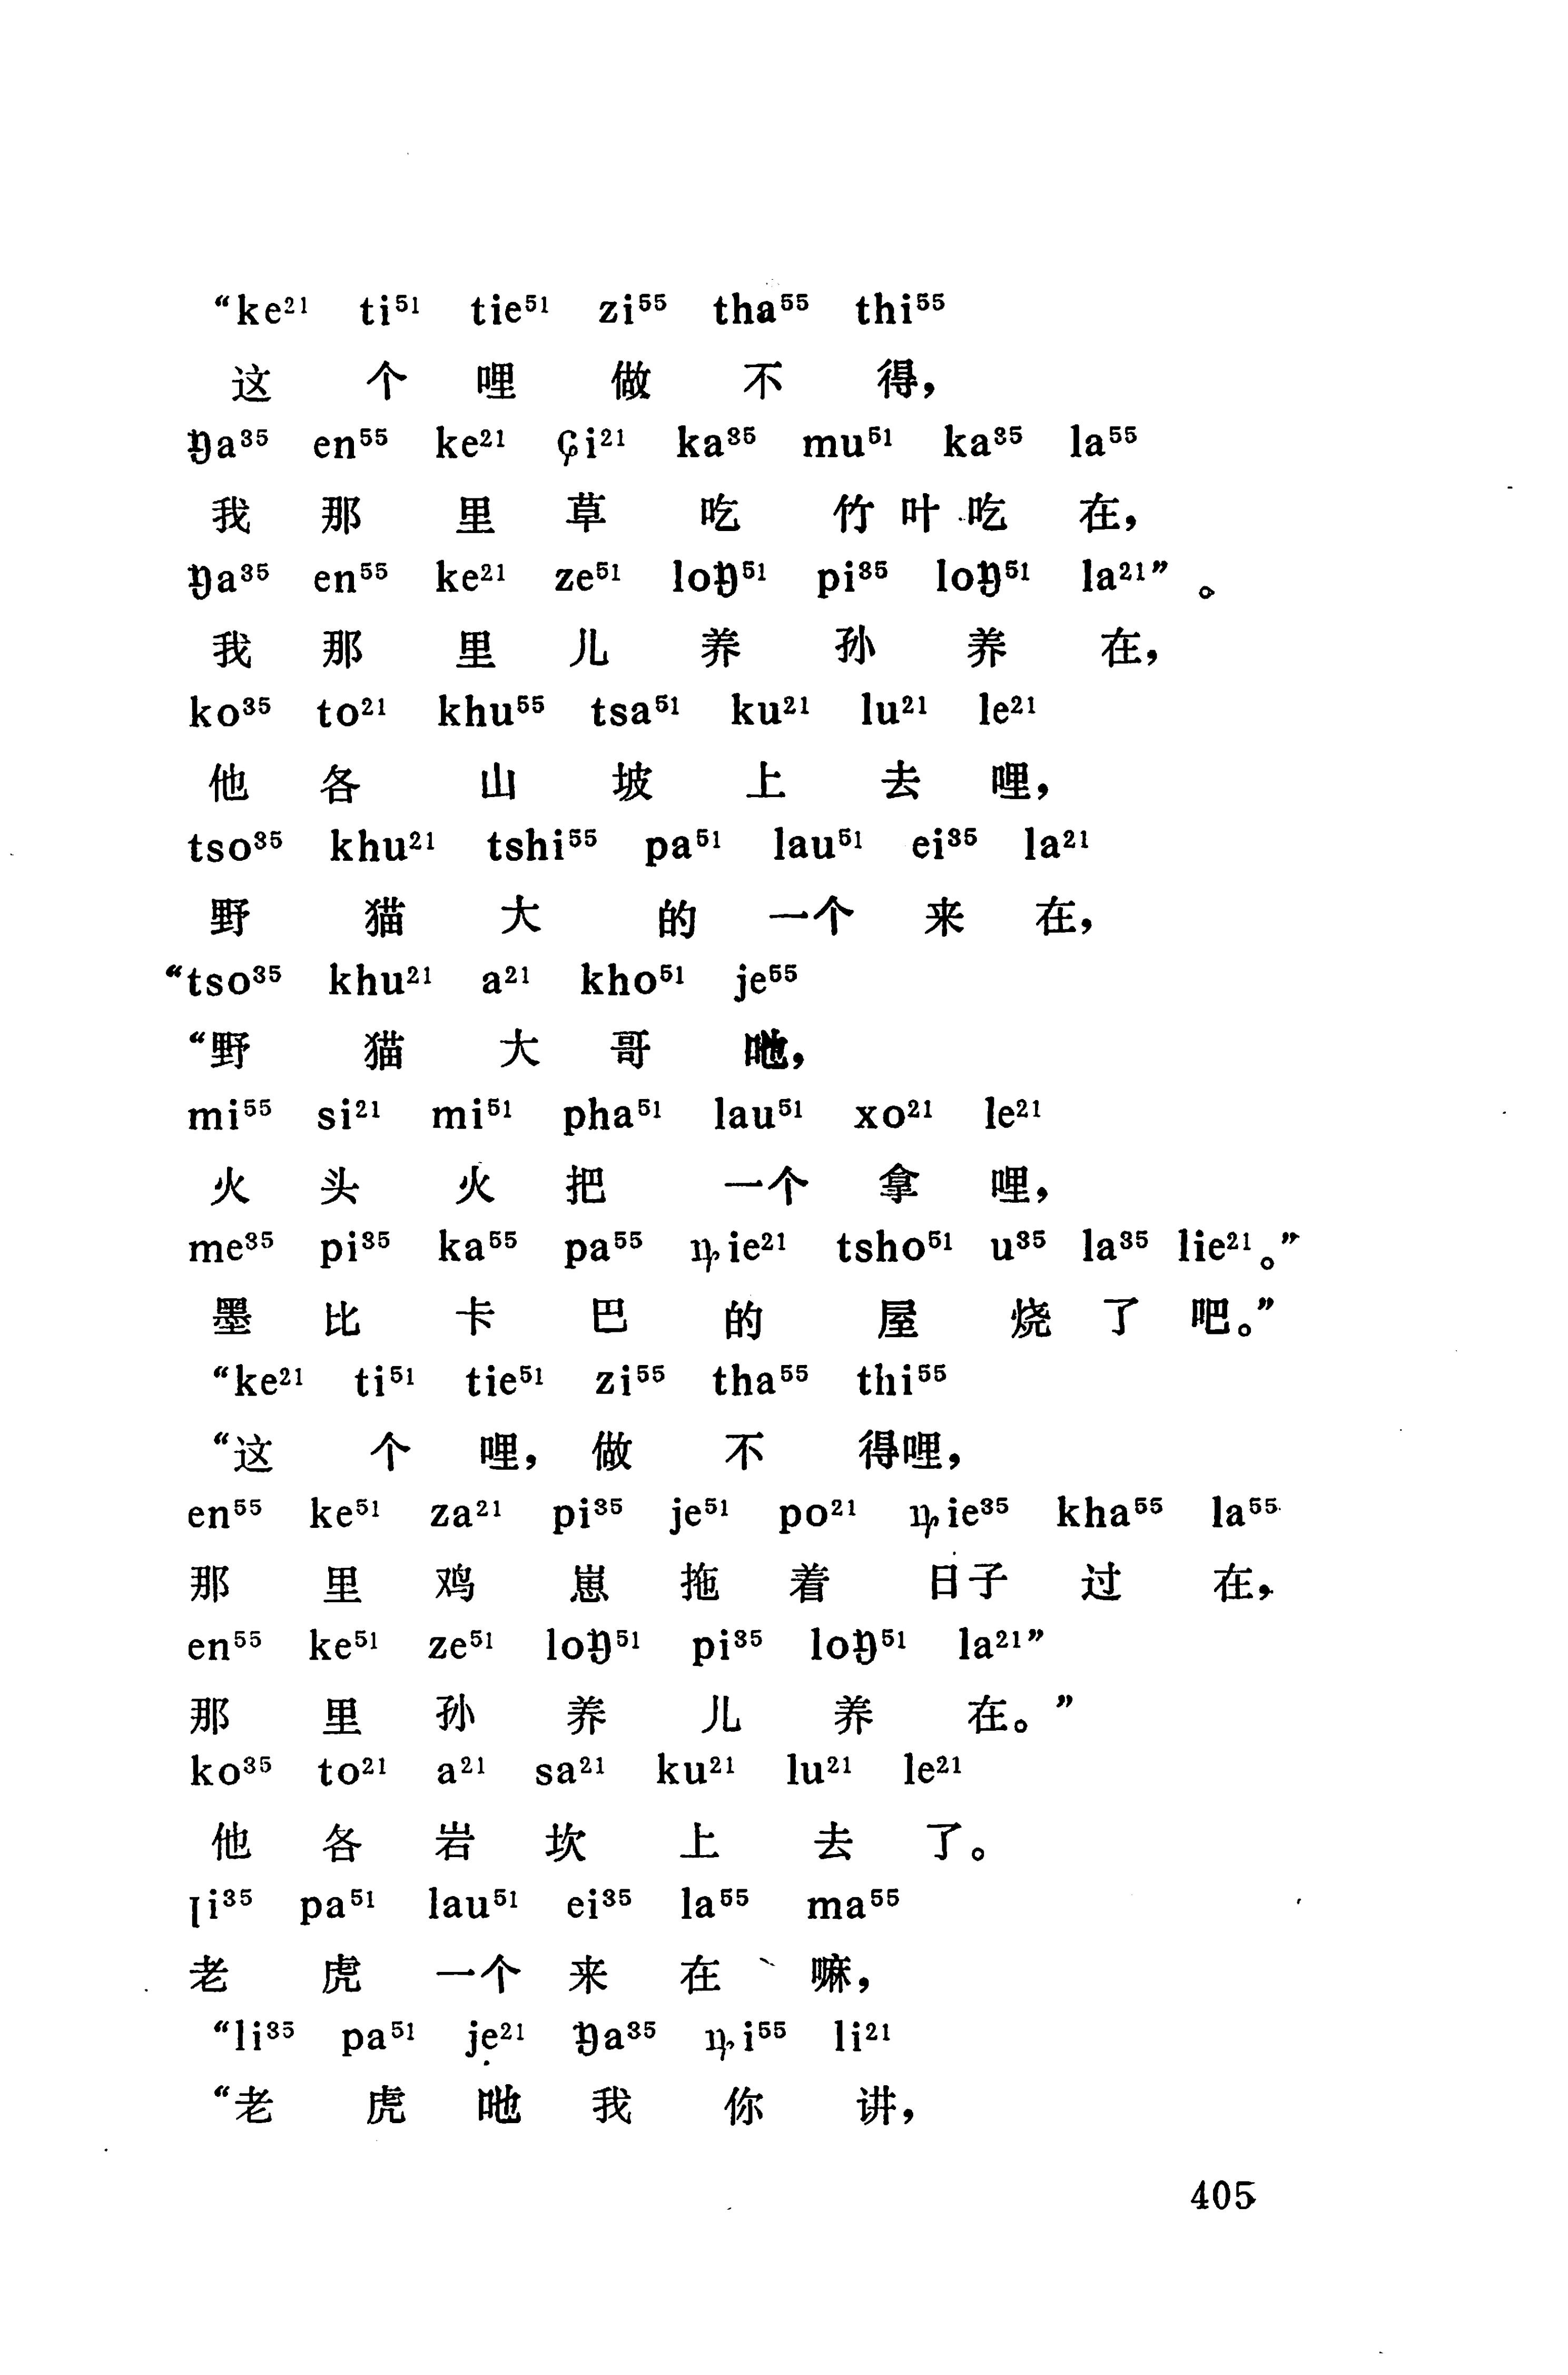 “ke²¹ ti⁵¹ tie⁵¹ zi⁵⁵ tha⁵⁵ thi⁵⁵
这 个 哩 做 不 得，
ŋa³⁵ en⁵⁵ ke²¹ ɕi²¹ ka³⁵ mu⁵¹ ka³⁵ la⁵⁵
我 那 里 草 吃 竹 叶 吃 在，
ŋa³⁵ en⁵⁵ ke²¹ ze⁵¹ loŋ⁵¹ pi³⁵ loŋ⁵¹ la²¹”。
我 那 里 儿 养 孙 养 在，
ko³⁵ to²¹ khu⁵⁵ tsa⁵¹ ku²¹ lu²¹ le²¹
他 各 山 坡 上 去 哩，
tso³⁵ khu²¹ tshi⁵⁵ pa⁵¹ lau⁵¹ ei³⁵ la²¹
野 猫 大 的 一个 来 在，
“tso³⁵ khu²¹ a²¹ kho⁵¹ je⁵⁵
“野 猫 大 哥 吔，
mi⁵⁵ si²¹ mi⁵¹ pha⁵¹ lau⁵¹ xo²¹ le²¹
火 头 火 把 一个 拿 哩，
me³⁵ pi³⁵ ka⁵⁵ pa⁵⁵ ȵie²¹ tsho⁵¹ u³⁵ la³⁵ lie²¹。”
墨 比 卡 巴 的 屋 烧 了 吧。”
“ke²¹ ti⁵¹ tie⁵¹ zi⁵⁵ tha⁵⁵ thi⁵⁵
“这 个 哩， 做 不 得哩，
en⁵⁵ ke⁵¹ za²¹ pi³⁵ je⁵¹ po²¹ ȵie³⁵ kha⁵⁵ la⁵⁵
那 里 鸡 崽 拖 着 日子 过 在，
en⁵⁵ ke⁵¹ ze⁵¹ loŋ⁵¹ pi³⁵ loŋ⁵¹ la²¹”
那 里 孙 养 儿 养 在。”
ko³⁵ to²¹ a²¹ sa²¹ ku²¹ lu²¹ le²¹
他 各 岩 坎 上 去 了。
li³⁵ pa⁵¹ lau⁵¹ ei³⁵ la⁵⁵ ma⁵⁵
老 虎 一个 来 在 嘛，
“li³⁵ pa⁵¹ je²¹ ŋa³⁵ ȵi⁵⁵ li²¹
“老 虎 吔 我 你 讲，
405